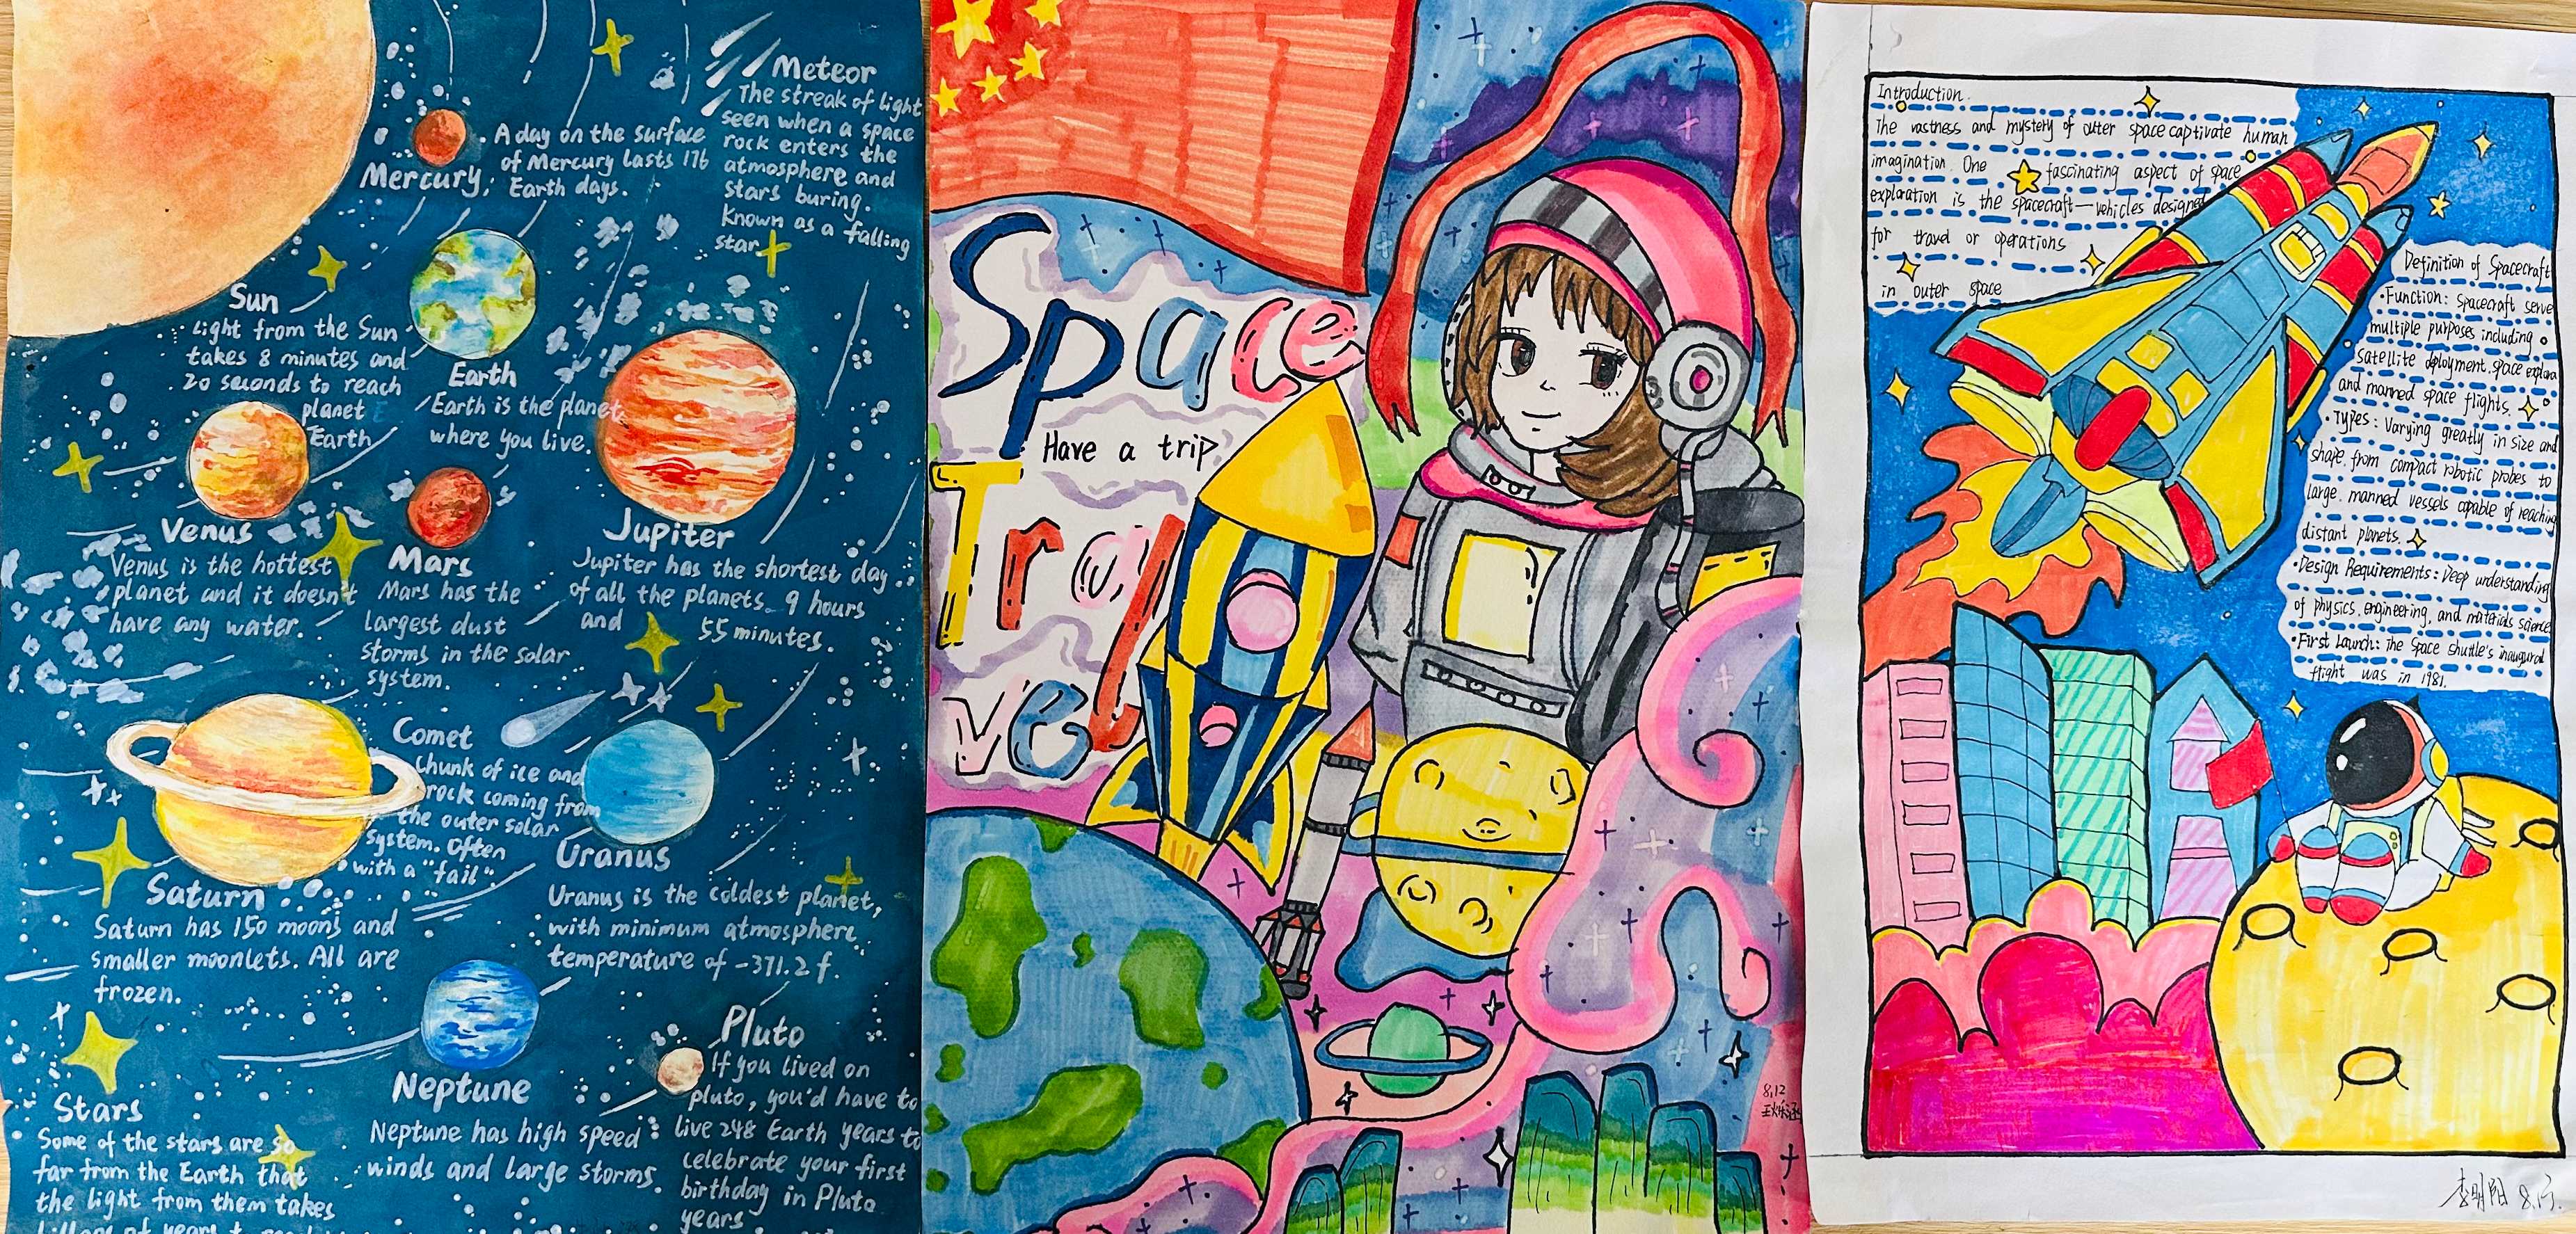 Meteor
The streak of light
seen when a space
rock enters the
atmosphere and
stars buring.
known as a falling
star
A day on the surface
of Mercury lasts 176
Earth days.
Mercury
Sun
Light from the Sun
takes 8 minutes and
20 seconds to reach
planet
Earth
Earth
Earth is the planet
where you live.
Venus
Venus is the hottest
planet and it doesn't
have any water.
Mars
Mars has the
largest dust
storms in the solar
system.
Jupiter
Jupiter has the shortest day
of all the planets. 9 hours
and 55 minutes.
Comet
Chunk of ice and
rock coming from
the outer solar
system. Often
with a "fail".
Saturn
Saturn has 150 moons and
smaller moonlets. All are
frozen.
Uranus
Uranus is the coldest planet,
with minimum atmosphere
temperature of -371.2 f.
Neptune
Neptune has high speed
winds and large storms.
Pluto
If you lived on
pluto, you'd have to
live 248 Earth years to
celebrate your first
birthday in Pluto
years
Stars
Some of the stars are so
far from the Earth that
the light from them takes
Space
Have a trip
Tra
vel
8,12
Introduction.
The vastness and mystery of outer space captivate human
imagination. One fascinating aspect of space
exploration is the spacecraft—vehicles designed
for travel or operations
in outer space
Definition of Spacecraft
•Function: Spacecraft serve
multiple purposes including
satellite deployment, space explora
and manned space flights.
•Types: Varying greatly in size and
shape, from compact robotic probes to
large, manned vessels capable of reaching
distant planets.
•Design Requirements: Deep understanding
of physics, engineering, and materials science
•First Launch: the Space shuttle's inaugural
flight was in 1981.
李明阳 8,15.